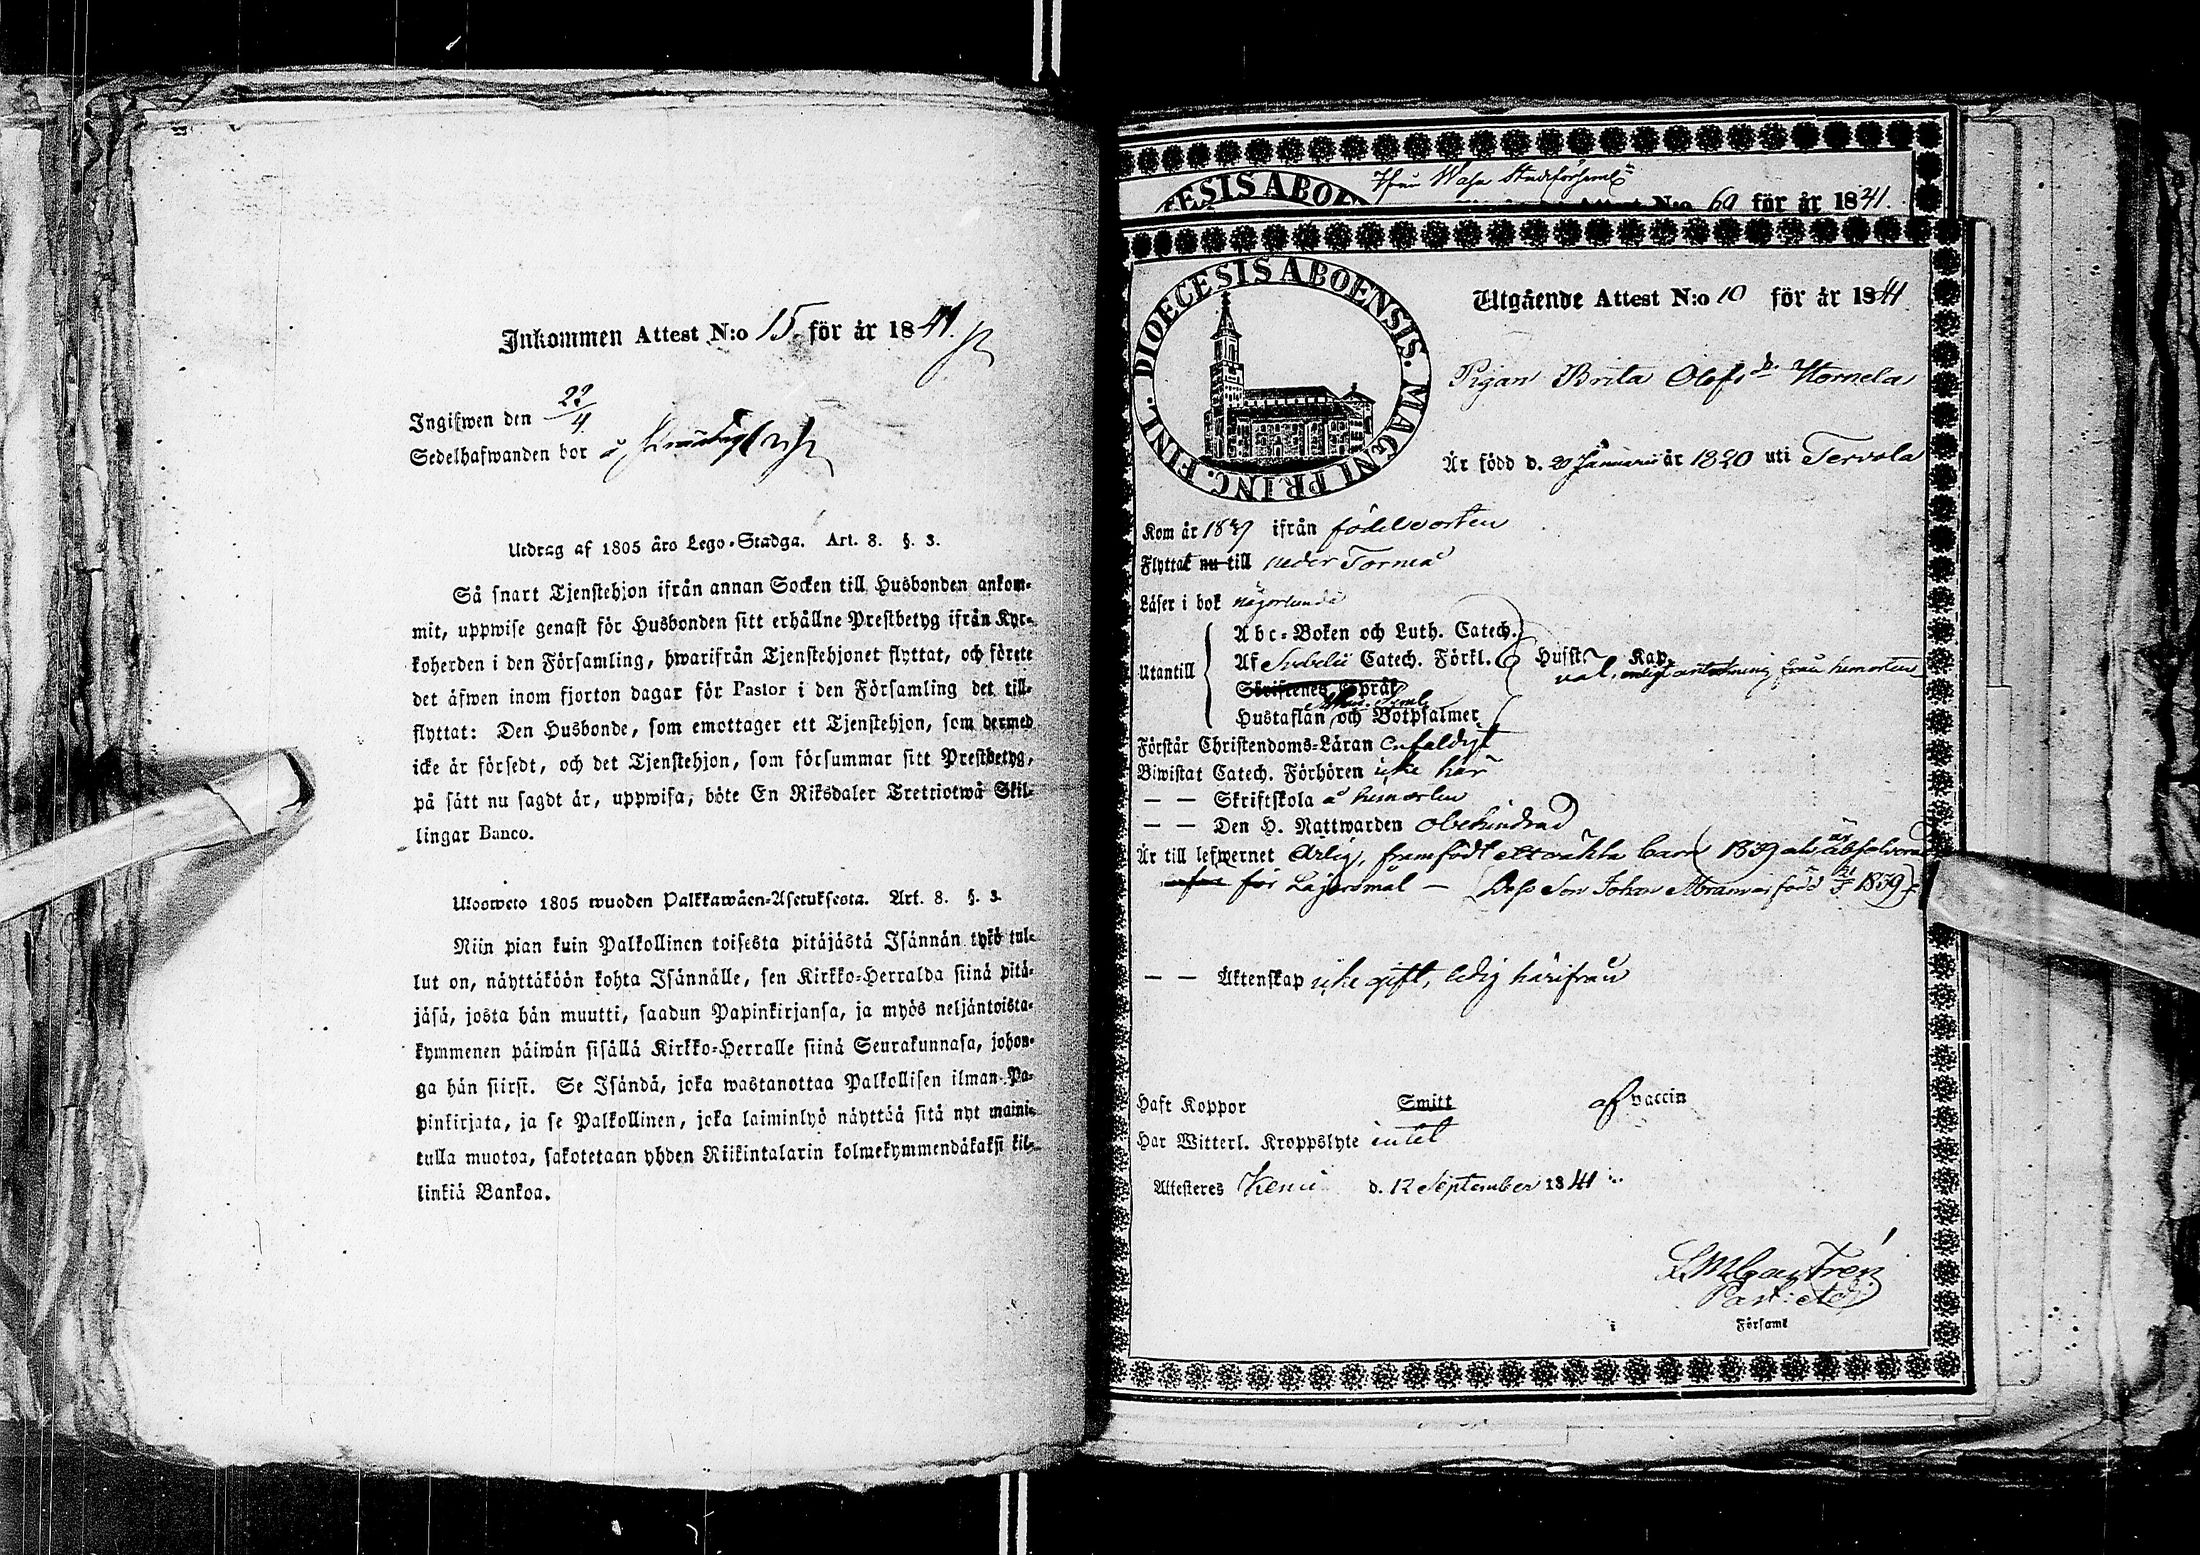 Inkommen Attest N:o 15 för år 1841.
Ingifwen den 22/4
Sedelhafwanden bor å
Utdrag af 1805 års Lego-Stadga. Art. 8. §. 3.
Så snart Tjenstehjon ifrån annan Socken till Husbonden ankom-
mit, uppwise genast för Husbonden sitt erhållne Prestbetyg ifrån Kyr-
koherden i den Församling, hwarifrån Tjenstehjonet flyttat, och förete
det äfwen inom fjorton dagar för Pastor i den Församling det till-
flyttat: Den Husbonde, som emottager ett Tjenstehjon, som dermed
icke är försedt, och det Tjenstehjon, som försummar sitt Prestbetyg,
på sätt nu sagdt är, uppwisa, böte En Riksdaler Trettiotwå Skil-
lingar Banco.
Uloosweto 1805 wuoden Palkkawäen-Asetuksesta. Art. 8. §. 3.
Niin pian kuin Palkollinen toisesta pitäjästä Isännän tykö tul-
lut on, näyttäköön kohta Isännälle, sen Kirkko-Herralda siinä pitä-
jäsä, josta hän muutti, saadun Papinkirjansa, ja myös neljäntoista-
kymmenen päiwän sisällä Kirkko-Herralle siinä Seurakunnasa, johon-
ga hän siirsi. Se Isändä, joka wastanottaa Palkollisen ilman Pa-
pinkirjata, ja se Palkollinen, joka laiminlyö näyttää sitä nyt maini-
tulla muotoa, sakotetaan yhden Riikintalarin kolmekymmendäkaksi kil-
linkiä Bankoa.
ifrån Wasa Stadsförseml:
ESIS ABOE
Attest N:o 60 för år 1841.
DIOECESIS ABOENSIS. MAGNI PRINC. FINL.
Utgående Attest N:o 10 för år 1841
Pigan Brita Olofsdr Hornela
Är född d. 20 Januarii år 1820 uti Tervola
Kom år 1839 ifrån födelseorten
Flyttat nu till neder Torneå
Läser i bok någorlunda
Utantill
Abc-Boken och Luth. Catech.
Af Svebelii Catech. Förkl. Husst. Kap.
val, enligt anteckning från hemorten
Skriftenes Språk
Hustaflan och Botpsalmer
Förstår Christendoms-Läran enfaldigt
Biwistat Catech. Förhören icke här
— — Skriftskola å hemorten
— — Den H. Nattwarden obehindrad
Är till lefwernet Ärlig, framfödt ett oäkta barn 1839 och är absolverad
för Lägersmål — (Dess Son Johan Abram är född 1839)
— — Äktenskap icke gift, ledig härifrån
Haft Koppor Smitt af vaccin
Har Witterl. Kroppslyte intet
Attesteres Kemi d. 12 September 1841
Past:
Församl